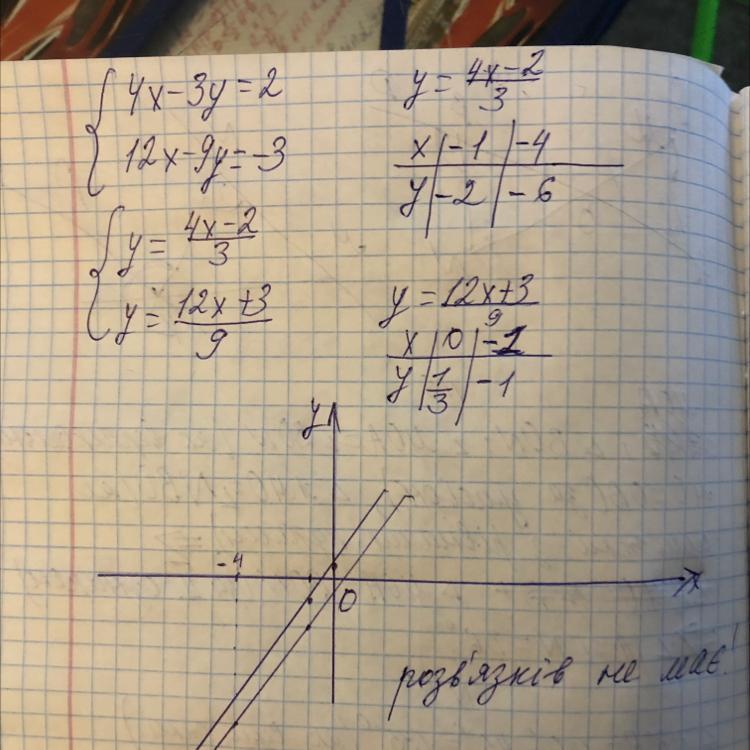 4x-3y=2
12x-9y=-3
y= 4x-2/3
y= 12x+3/9
y= 4x-2/3
x|-1|-4
y|-2|-6
y=12x+3/9
x|0|-1
y|1/3|-1
y
-4
0
x
розв'язків не має!